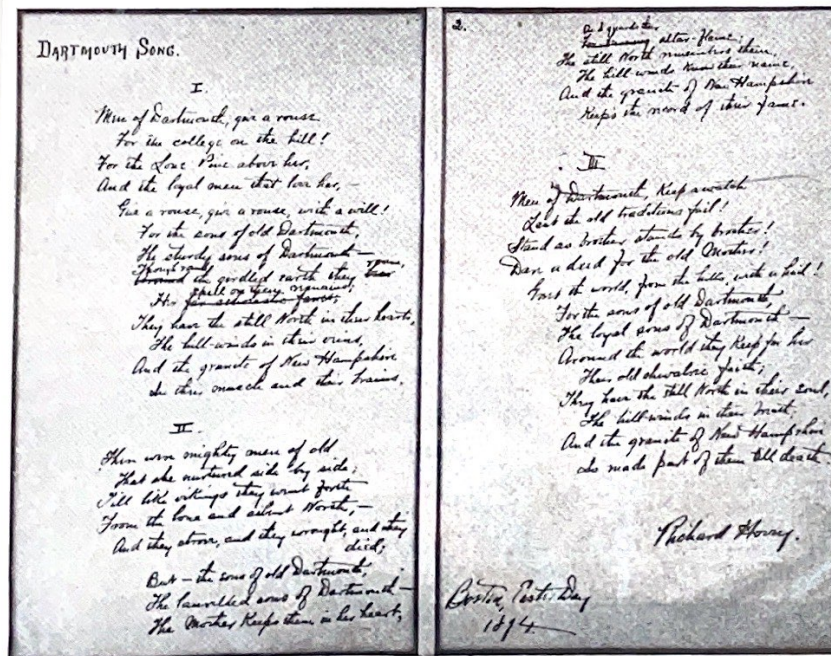 DARTMOUTH SONG.
I.
Men of Dartmouth, give a rouse
For the college on the hill!
For the Lone Pine above her,
And the loyal men that love her, —
Give a rouse, give a rouse, with a will!
For the sons of old Dartmouth,
The sturdy sons of Dartmouth —
Though round the girdled earth they roam,
Her spell on them remains;
They have the still North in their hearts,
The hill-winds in their veins,
And the granite of New Hampshire
In their muscles and their brains.
II.
They were mighty men of old
That she nurtured side by side;
Till like vikings they went forth
From the lone and silent North, —
And they strove, and they wrought, and they
died;
But — the sons of old Dartmouth,
The laurelled sons of Dartmouth —
The Mother keeps them in her heart,
2.
And guards their
altar-flame;
The still North remembers them,
The hill-winds know their name,
And the granite of New Hampshire
Keeps the record of their fame.
III
Men of Dartmouth, keep a watch
Lest the old traditions fail!
Stand as brother stands by brother!
Dare a deed for the old Mother!
Greet the world, from the hills, with a hail!
For the sons of old Dartmouth,
The loyal sons of Dartmouth —
Around the world they keep for her
Their old chivalric faith;
They have the still North in their soul,
The hill-winds in their breath;
And the granite of New Hampshire
Is made part of them till death.
Richard Hovey.
Boston,
1894.